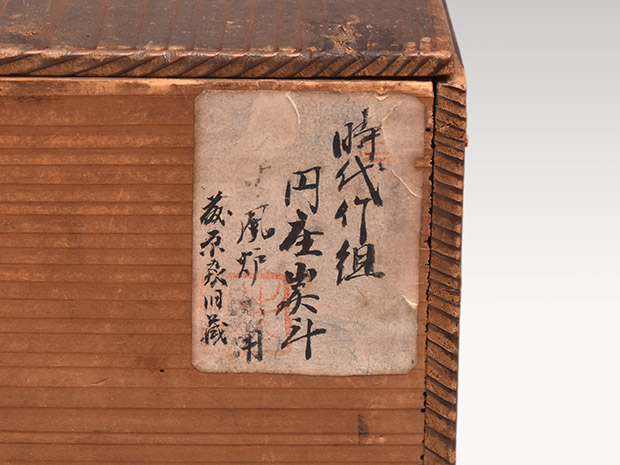 時代竹組
円座炭斗
風炉用
藤原家旧蔵